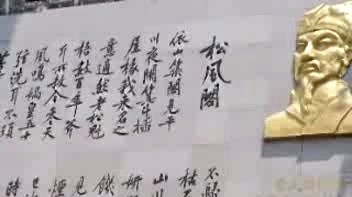 松風閣
依山築閣見平
川夜闌箕斗插
屋椽我來名之
意適然老松魁
梧數百年斧
斤所赦今參天
風鳴媧皇五十
弦洗耳不須
不歸
枯
山川
妍
見
煙
時